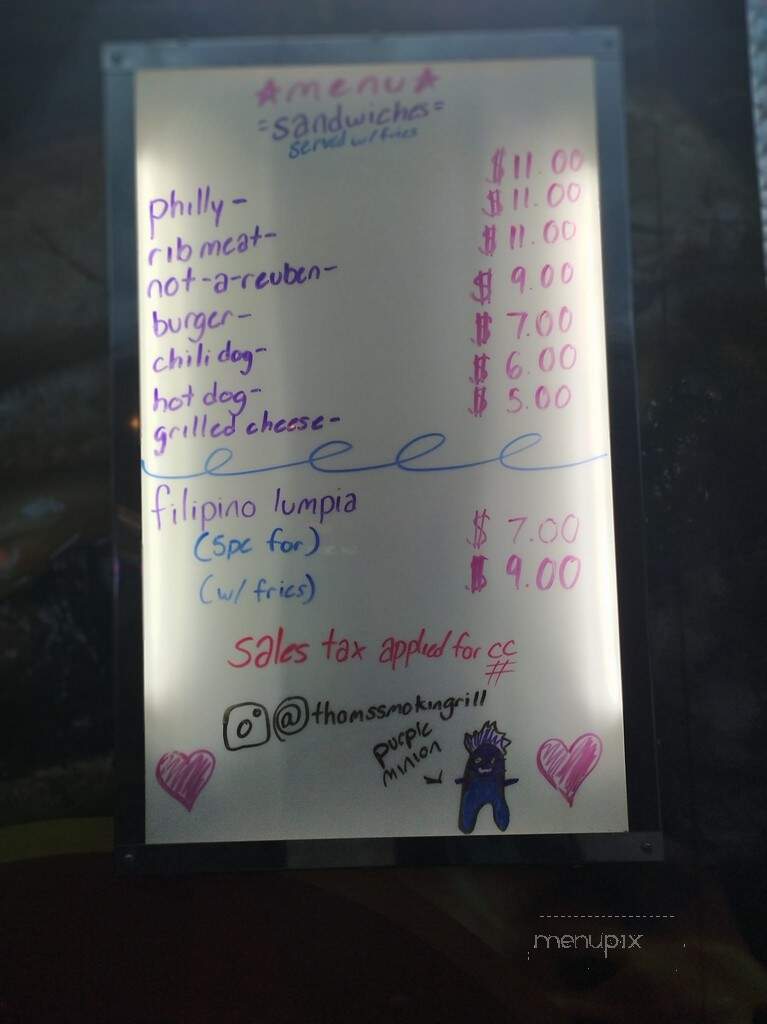 ★menu★
=sandwiches=
served w/fries
philly- $11.00
rib meat- $11.00
not-a-reuben- $11.00
burger- $9.00
chili dog- $7.00
hot dog- $6.00
grilled cheese- $5.00
filipino lumpia
(5pc for) $7.00
(w/ fries) $9.00
sales tax applied for cc
@thomssmokingrill
purple
minion
menupix